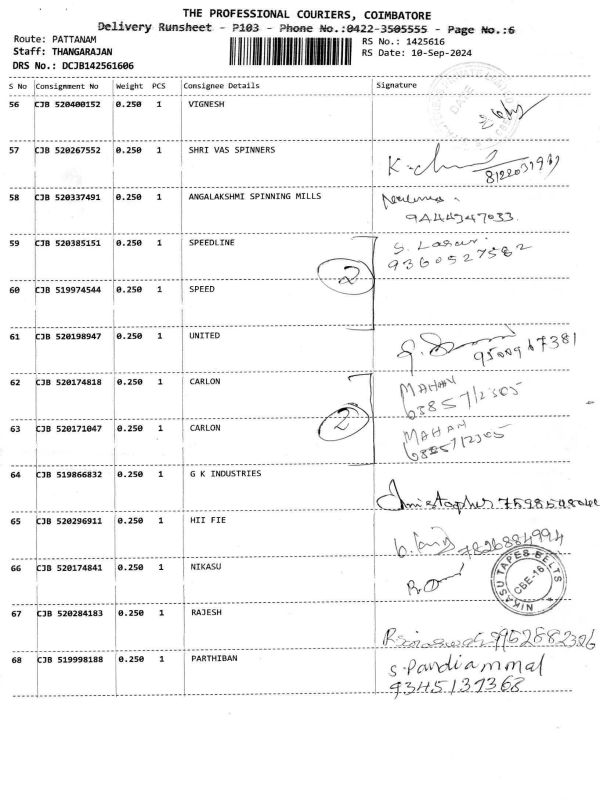 THE PROFESSIONAL COURIERS, COIMBATORE
Delivery Runsheet - P103 - Phone No.:0422-3505555 - Page No.:6
Route: PATTANAM
RS No.: 1425616
Staff: THANGARAJAN
RS Date: 10-Sep-2024
DRS No.: DCJB142561606
S No Consignment No Weight PCS Consignee Details Signature
56 CJB 520400152 0.250 1 VIGNESH
57 CJB 520267552 0.250 1 SHRI VAS SPINNERS
58 CJB 520337491 0.250 1 ANGALAKSHMI SPINNING MILLS
9A44347033
59 CJB 520385151 0.250 1 SPEEDLINE
9360527582
2
60 CJB 519974544 0.250 1 SPEED
61 CJB 520198947 0.250 1 UNITED
62 CJB 520174818 0.250 1 CARLON
MAHAN
63 CJB 520171047 0.250 1 CARLON
2
MAHAN
64 CJB 519866832 0.250 1 G K INDUSTRIES
Christopher
65 CJB 520296911 0.250 1 HII FIE
7826884994
66 CJB 520174841 0.250 1 NIKASU
NIKASU TAPES BELTS
CBE-16
67 CJB 520284183 0.250 1 RAJESH
9952882326
68 CJB 519998188 0.250 1 PARTHIBAN
S. Pandiammal
9345137368